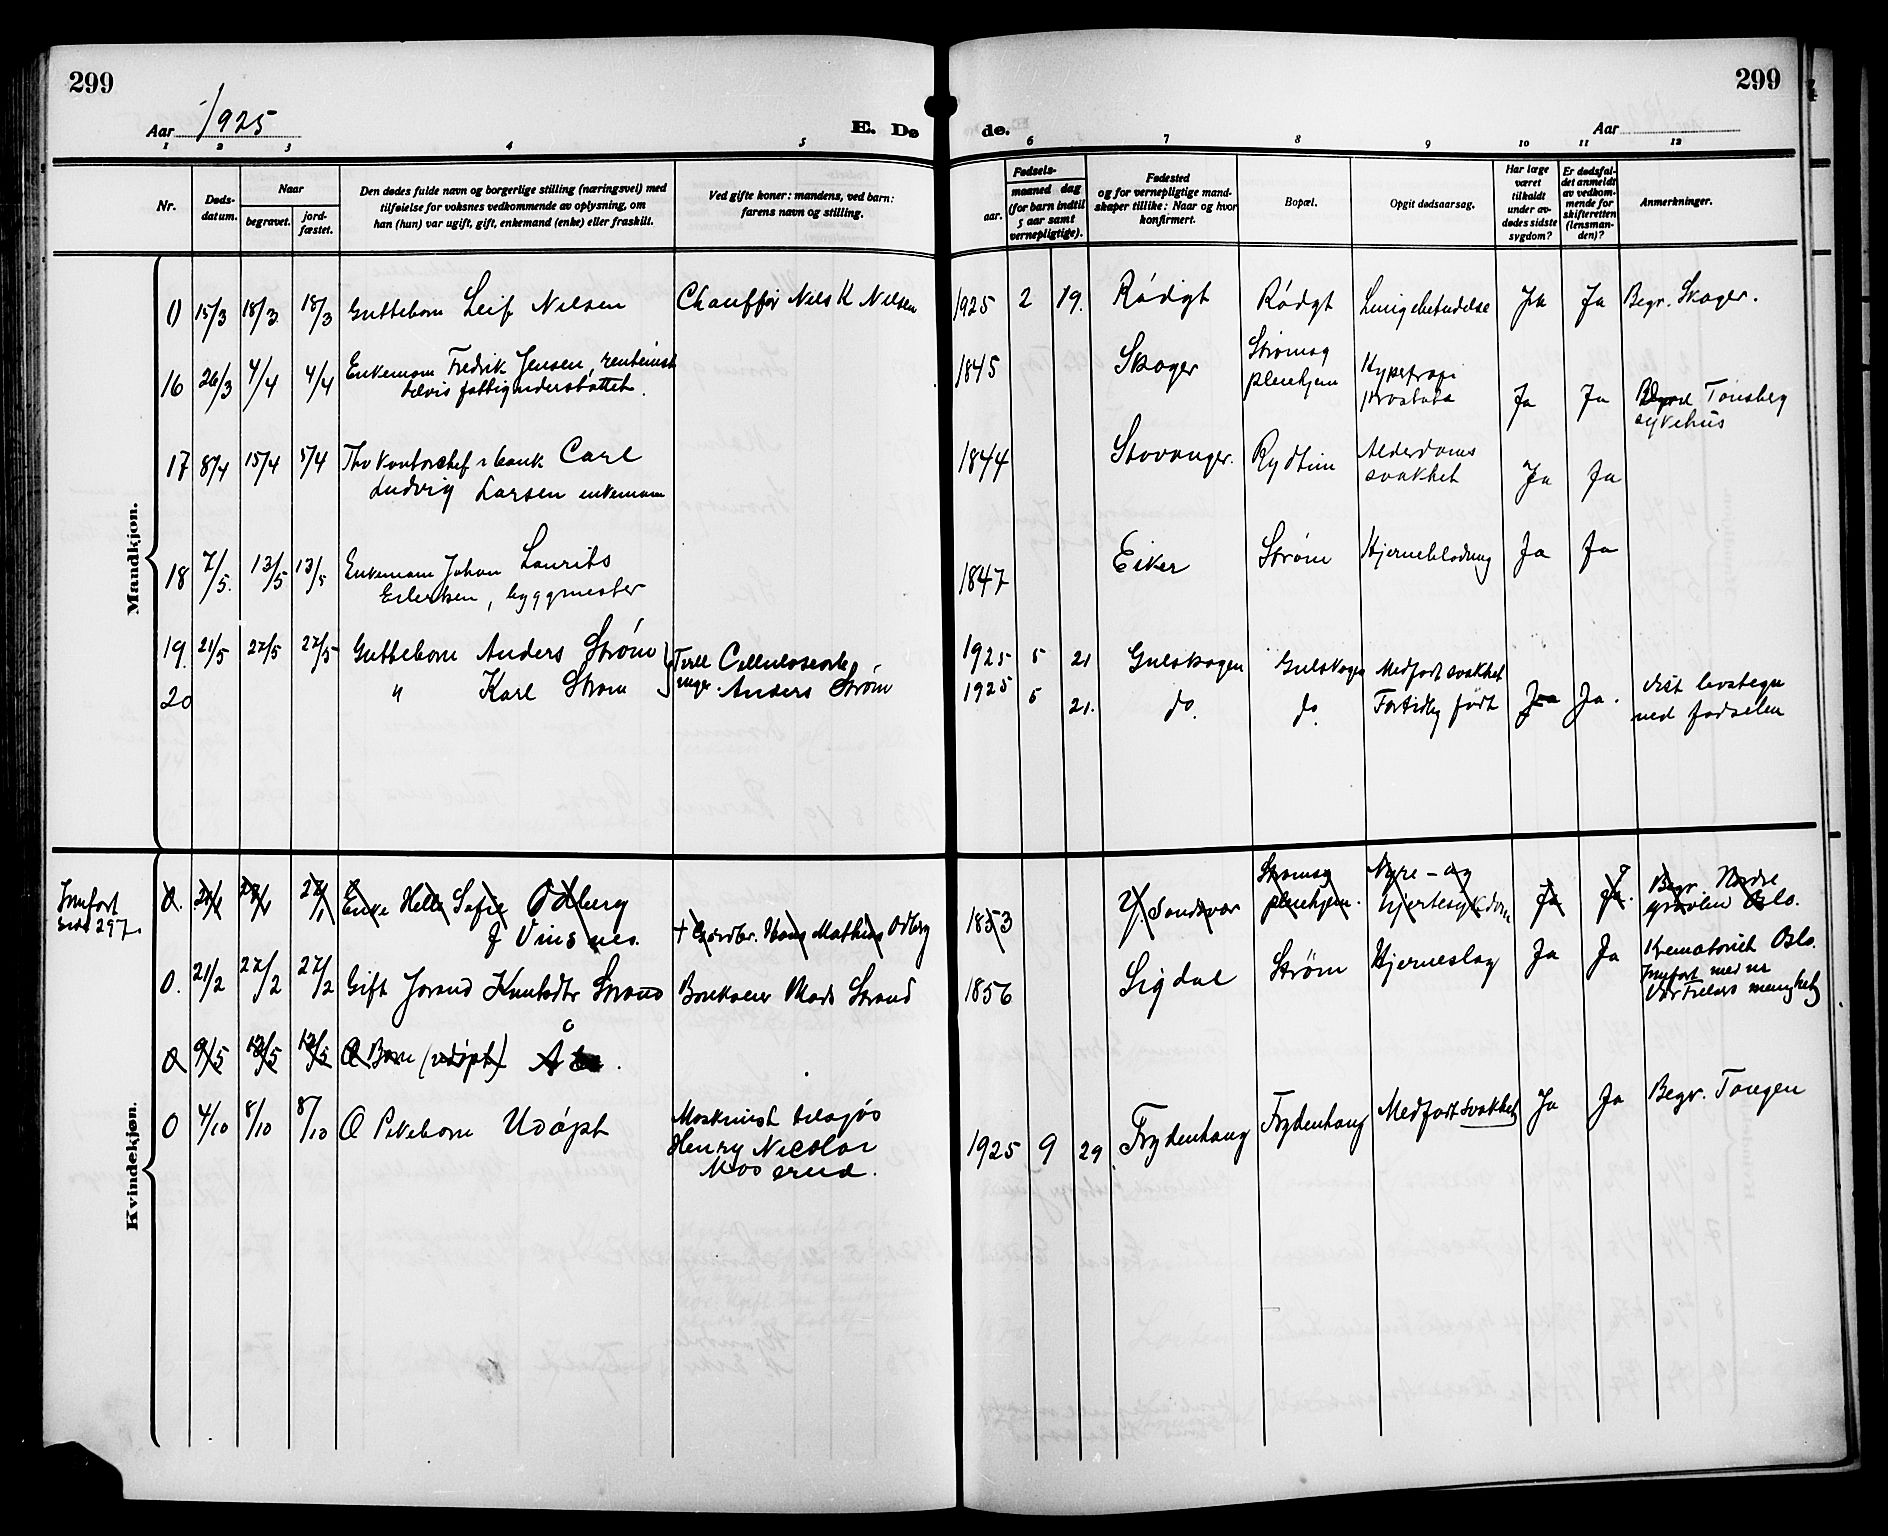 299
299
Aar 1925
E. Dø
de.
Aar
1 2 3 4 5 6 7 8 9 10 11 12
Nr.
Døds-
datum.
Naar
begravet.
jord-
fæstet.
Den dødes fulde navn og borgerlige stilling (næringsvei) med
tilføielse for voksnes vedkommende av oplysning, om
han (hun) var ugift, gift, enkemand (enke) eller fraskilt.
Ved gifte koner: mandens, ved barn:
farens navn og stilling.
Fødsels-
aar.
maaned dag
(for barn indtil
5 aar samt
vernepligtige).
Fødested
og for vernepligtige mand-
skaper tillike: Naar og hvor
konfirmert.
Bopæl.
Opgit dødsaarsag.
Har læge
været
tilkaldt
under av-
dødes sidste
sygdom?
Er dødsfal-
det anmeldt
av vedkom-
mende for
skifteretten
(lensman-
den)?
Anmerkninger.
Mandkjøn.
0 15/3 18/3 18/3 Guttebarn Leif Nilsen Chauffør Nils K Nilsen 1925 2 19. Rødgt Rødgt Lungebetndelse Ja Ja Begr. Skoger.
16 26/3 4/4 4/4 Enkemann Fredrik Jensen, rentenist
delvis fattigunderstøttet. 1845 Skoger Strømsø
pleiehjem Hypertrofi
prostata Ja Ja Tønsberg
sykehus
17 8/4 15/4 15/4 Fhv kontorchef i bank Carl
Ludvig Larsen enkemann 1844 Stavanger. Rydtun Alderdoms
svakhet Ja Ja
18 7/5. 13/5 13/5 Enkemann Johan Laurits
Eilertsen, byggmester 1847 Eiker Strøm Hjerneblødning Ja Ja
19. 21/5 27/5 27/5 Guttebarn Anders Strøm 1925 5 21 Gulskogen Gulskogen Medfødt svakhet
20 " Karl Strøm Anders Strøm 1925 5 21. do. do. Fortidlig født Ja Ja. vist livstegn
ved fødselen
Kvindekjøn.
Innført
side 297.
0. 21/1 27/1 27/1 Enke Helle Sofie Ødberg
f Vinsnes. + Gårdbr. Hans Mathias Ødberg 1853 Y. Sandsvær Strømsø
pleiehjem. Nyre - og
hjertesykdom Ja Ja. Begr. Nordre
gravlun Oslo.
0. 21/2 27/2 27/2 Gift Jørand Knutsdtr Strand Mads Strand 1856 Sigdal Strøm Hjerneslag Ja Ja Krematoriet Oslo.
Innført med nr
Vår Frelsers menighet
0 9/5 13/5 13/5 Barn (udøpt)
0 4/10 8/10 8/10 Pikebarn Udøpt Maskinist tilsjøs
Henry Nicolai
Moserud. 1925 9 29. Frydenhaug Frydenhaug Medfødt svakhet Ja Ja Begr. Tangen